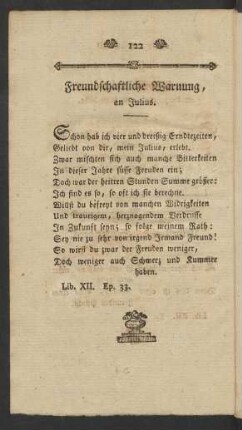 122
Freundschaftliche Warnung,
an Julius.
Schon hab ich vier und dreißig Erndtezeiten,
Geliebt von dir, mein Julius, erlebt.
Zwar mischten sich auch manche Bitterkeiten
In dieser Jahre süße Freuden ein;
Doch war der heitren Stunden Summe größer:
Ich find es so, so oft ich sie berechne.
Willst du befreyt von manchen Widrigkeiten
Und traurigem, herznagendem Verdrusse
In Zukunft seyn; so folge meinem Rath:
Sey nie zu sehr von irgend Jemand Freund!
So wirst du zwar der Freuden weniger,
Doch weniger auch Schmerz und Kummer
haben.
Lib. XII. Ep. 33.